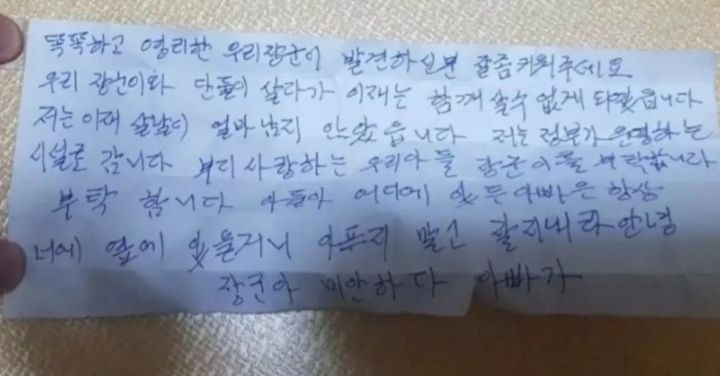 똑똑하고 영리한 우리장군이 발견하신분 잘좀키워주세요
우리 장군이와 단둘이 살다가 이재는 함께 살수 없게 돼짓읍니다
저는 이재 살날이 얼마남지 안았읍니다 저는 정부가 운영하는
시설로 갑니다 부디 사랑하는 우리아들 장군이를 부탁합니다
부탁 합니다 아들아 어디에 있든 아빠은 항상
너에 옆에 있을거니 아푸지 말고 잘지내라 안녕
장군아 미안하다 아빠가